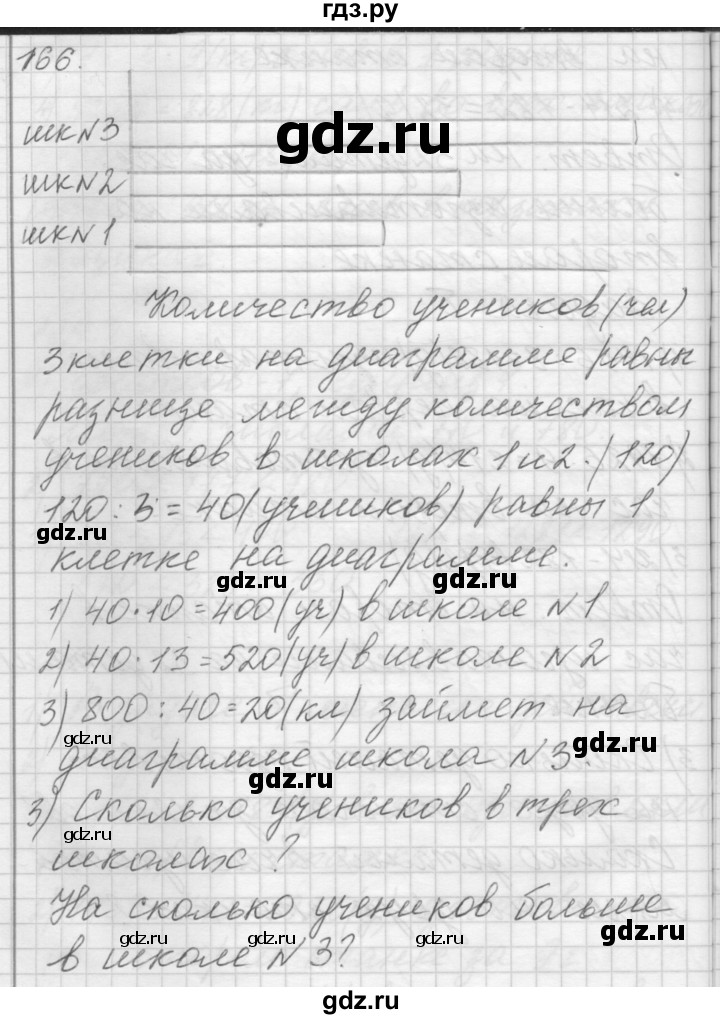 гдз.ру
166.
gdz.ru
шк N 3
шк N 2
шк N 1
Количество учеников (чел)
3 клетки на диаграмме равны
разнице между количеством
учеников в школах 1 и 2. (120)
120 : 3 = 40 (учеников) равны 1
gdz.ru
клетке на диаграмме.
gdz.ru
gdz.ru
1) 40·10 = 400 (уч) в школе N 1
2) 40·13 = 520 (уч) в школе N 2
3) 800 : 40 = 20 (кл) займет на
gdz.ru
gdz.ru
диаграмме школа N 3.
gdz.ru
3) Сколько учеников в трех
gdz.ru
школах?
На сколько учеников больше
gdz.ru
gdz.ru
gdz.ru
в школе N 3?
gdz.ru